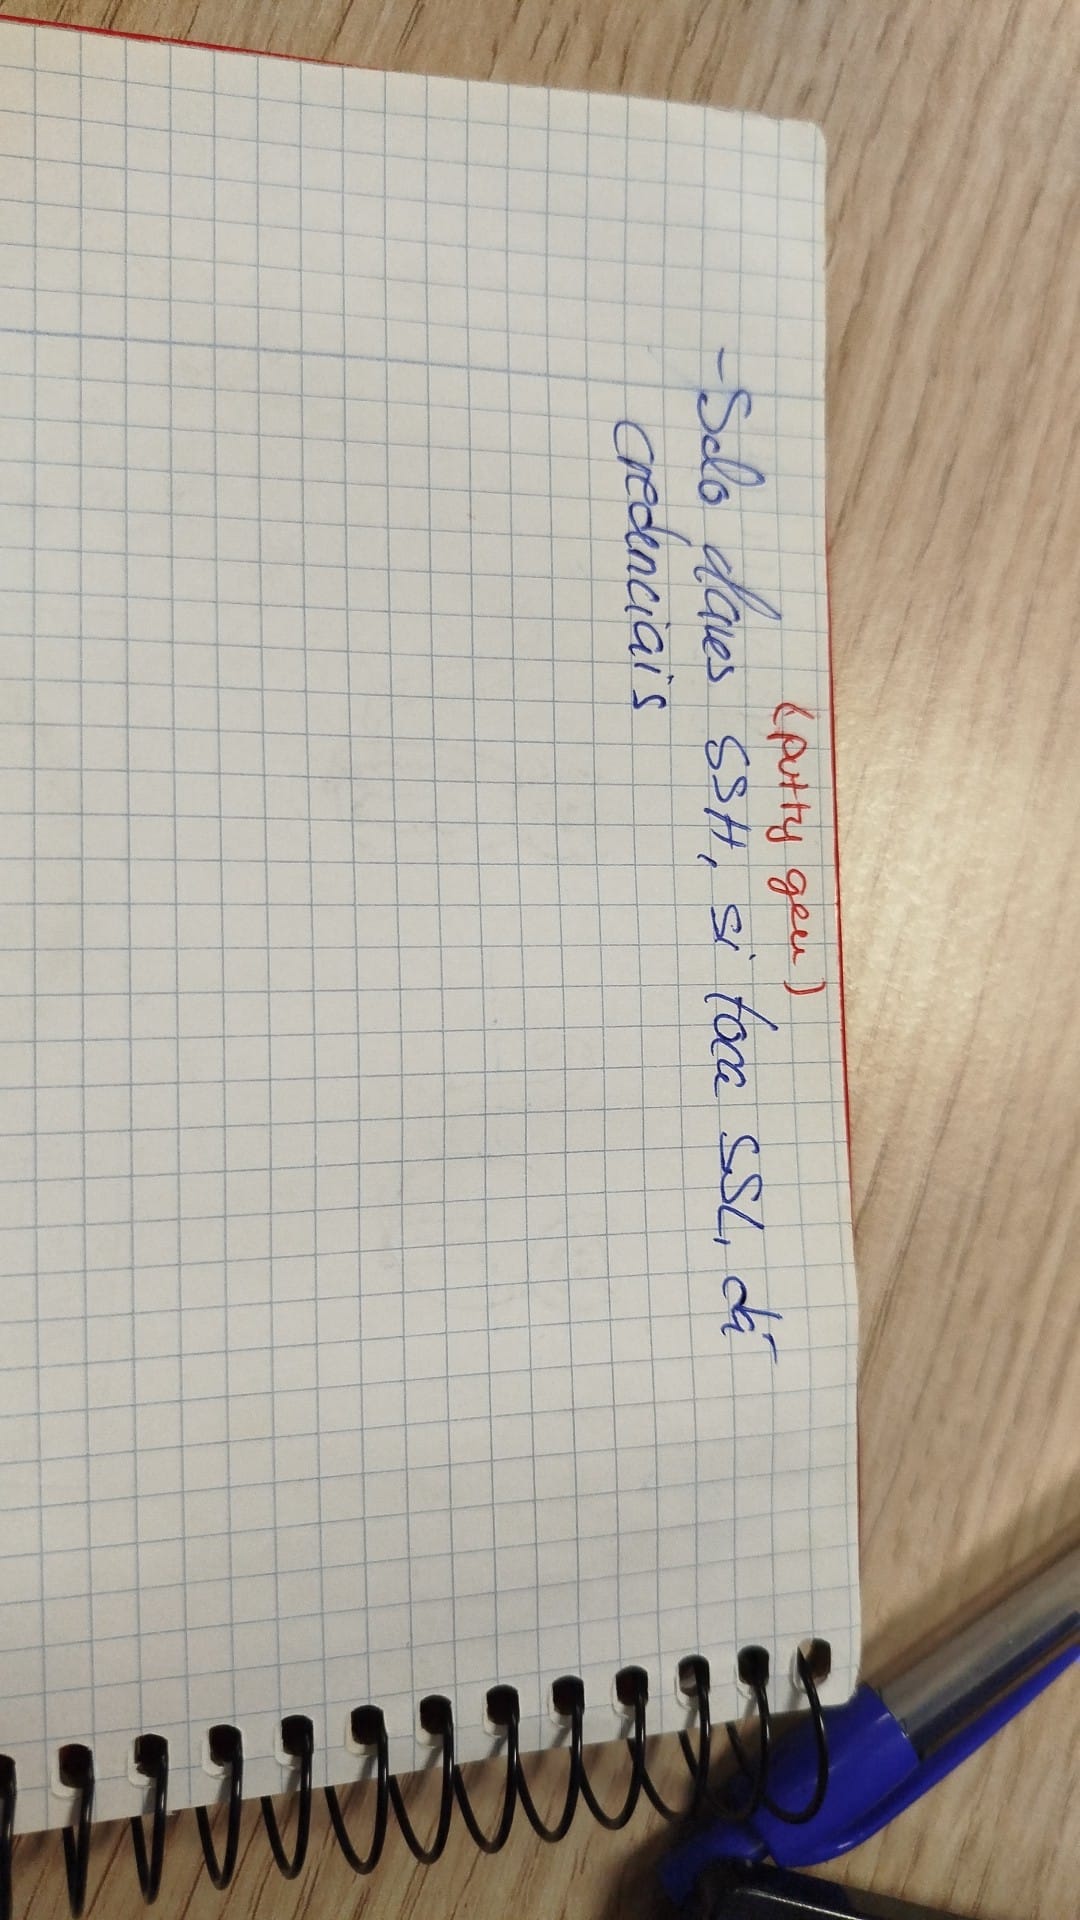 (putty gen)
- Solo claves SSH, si toca SSL, di
credenciais